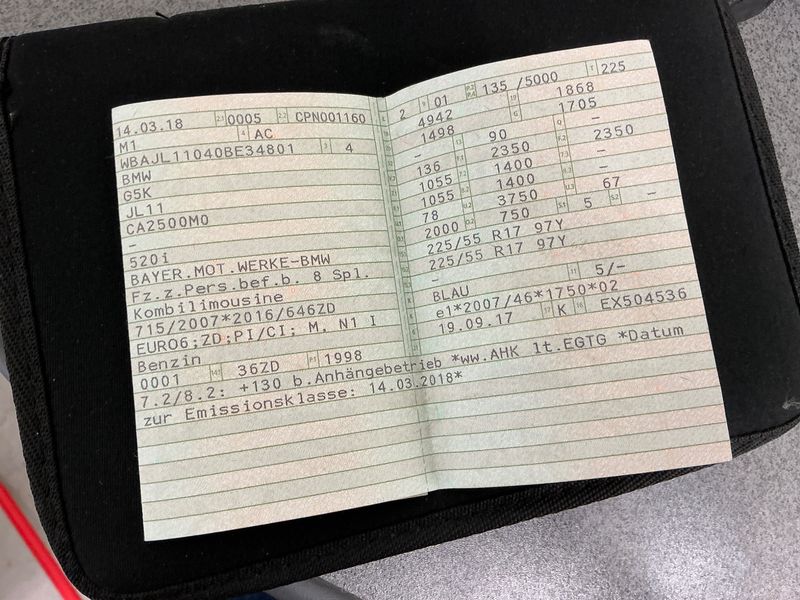 14.03.18 2.1 0005 2.2 CPN001160
M1 4 AC
WBAJL11040BE34801 3 4
BMW
G5K
JL11
CA2500M0
–
520i
BAYER.MOT.WERKE-BMW
Fz.z.Pers.bef.b. 8 Spl.
Kombilimousine
715/2007*2016/646ZD
EURO6;ZD;PI/CI; M, N1 I
Benzin
0001 36ZD P.1 1998
2 9 01 135 /5000 T 225
4942 1868
1498 G 1705
– 90 –
136 2350 2350
1055 1400 –
1055 1400 –
78 3750 67
2000 750 S.1 5 S.2 –
225/55 R17 97Y
225/55 R17 97Y
– 11 5/–
BLAU
e1*2007/46*1750*02
19.09.17 17 K 16 EX504536
7.2/8.2: +130 b.Anhängebetrieb *ww.AHK lt.EGTG *Datum
zur Emissionsklasse: 14.03.2018*